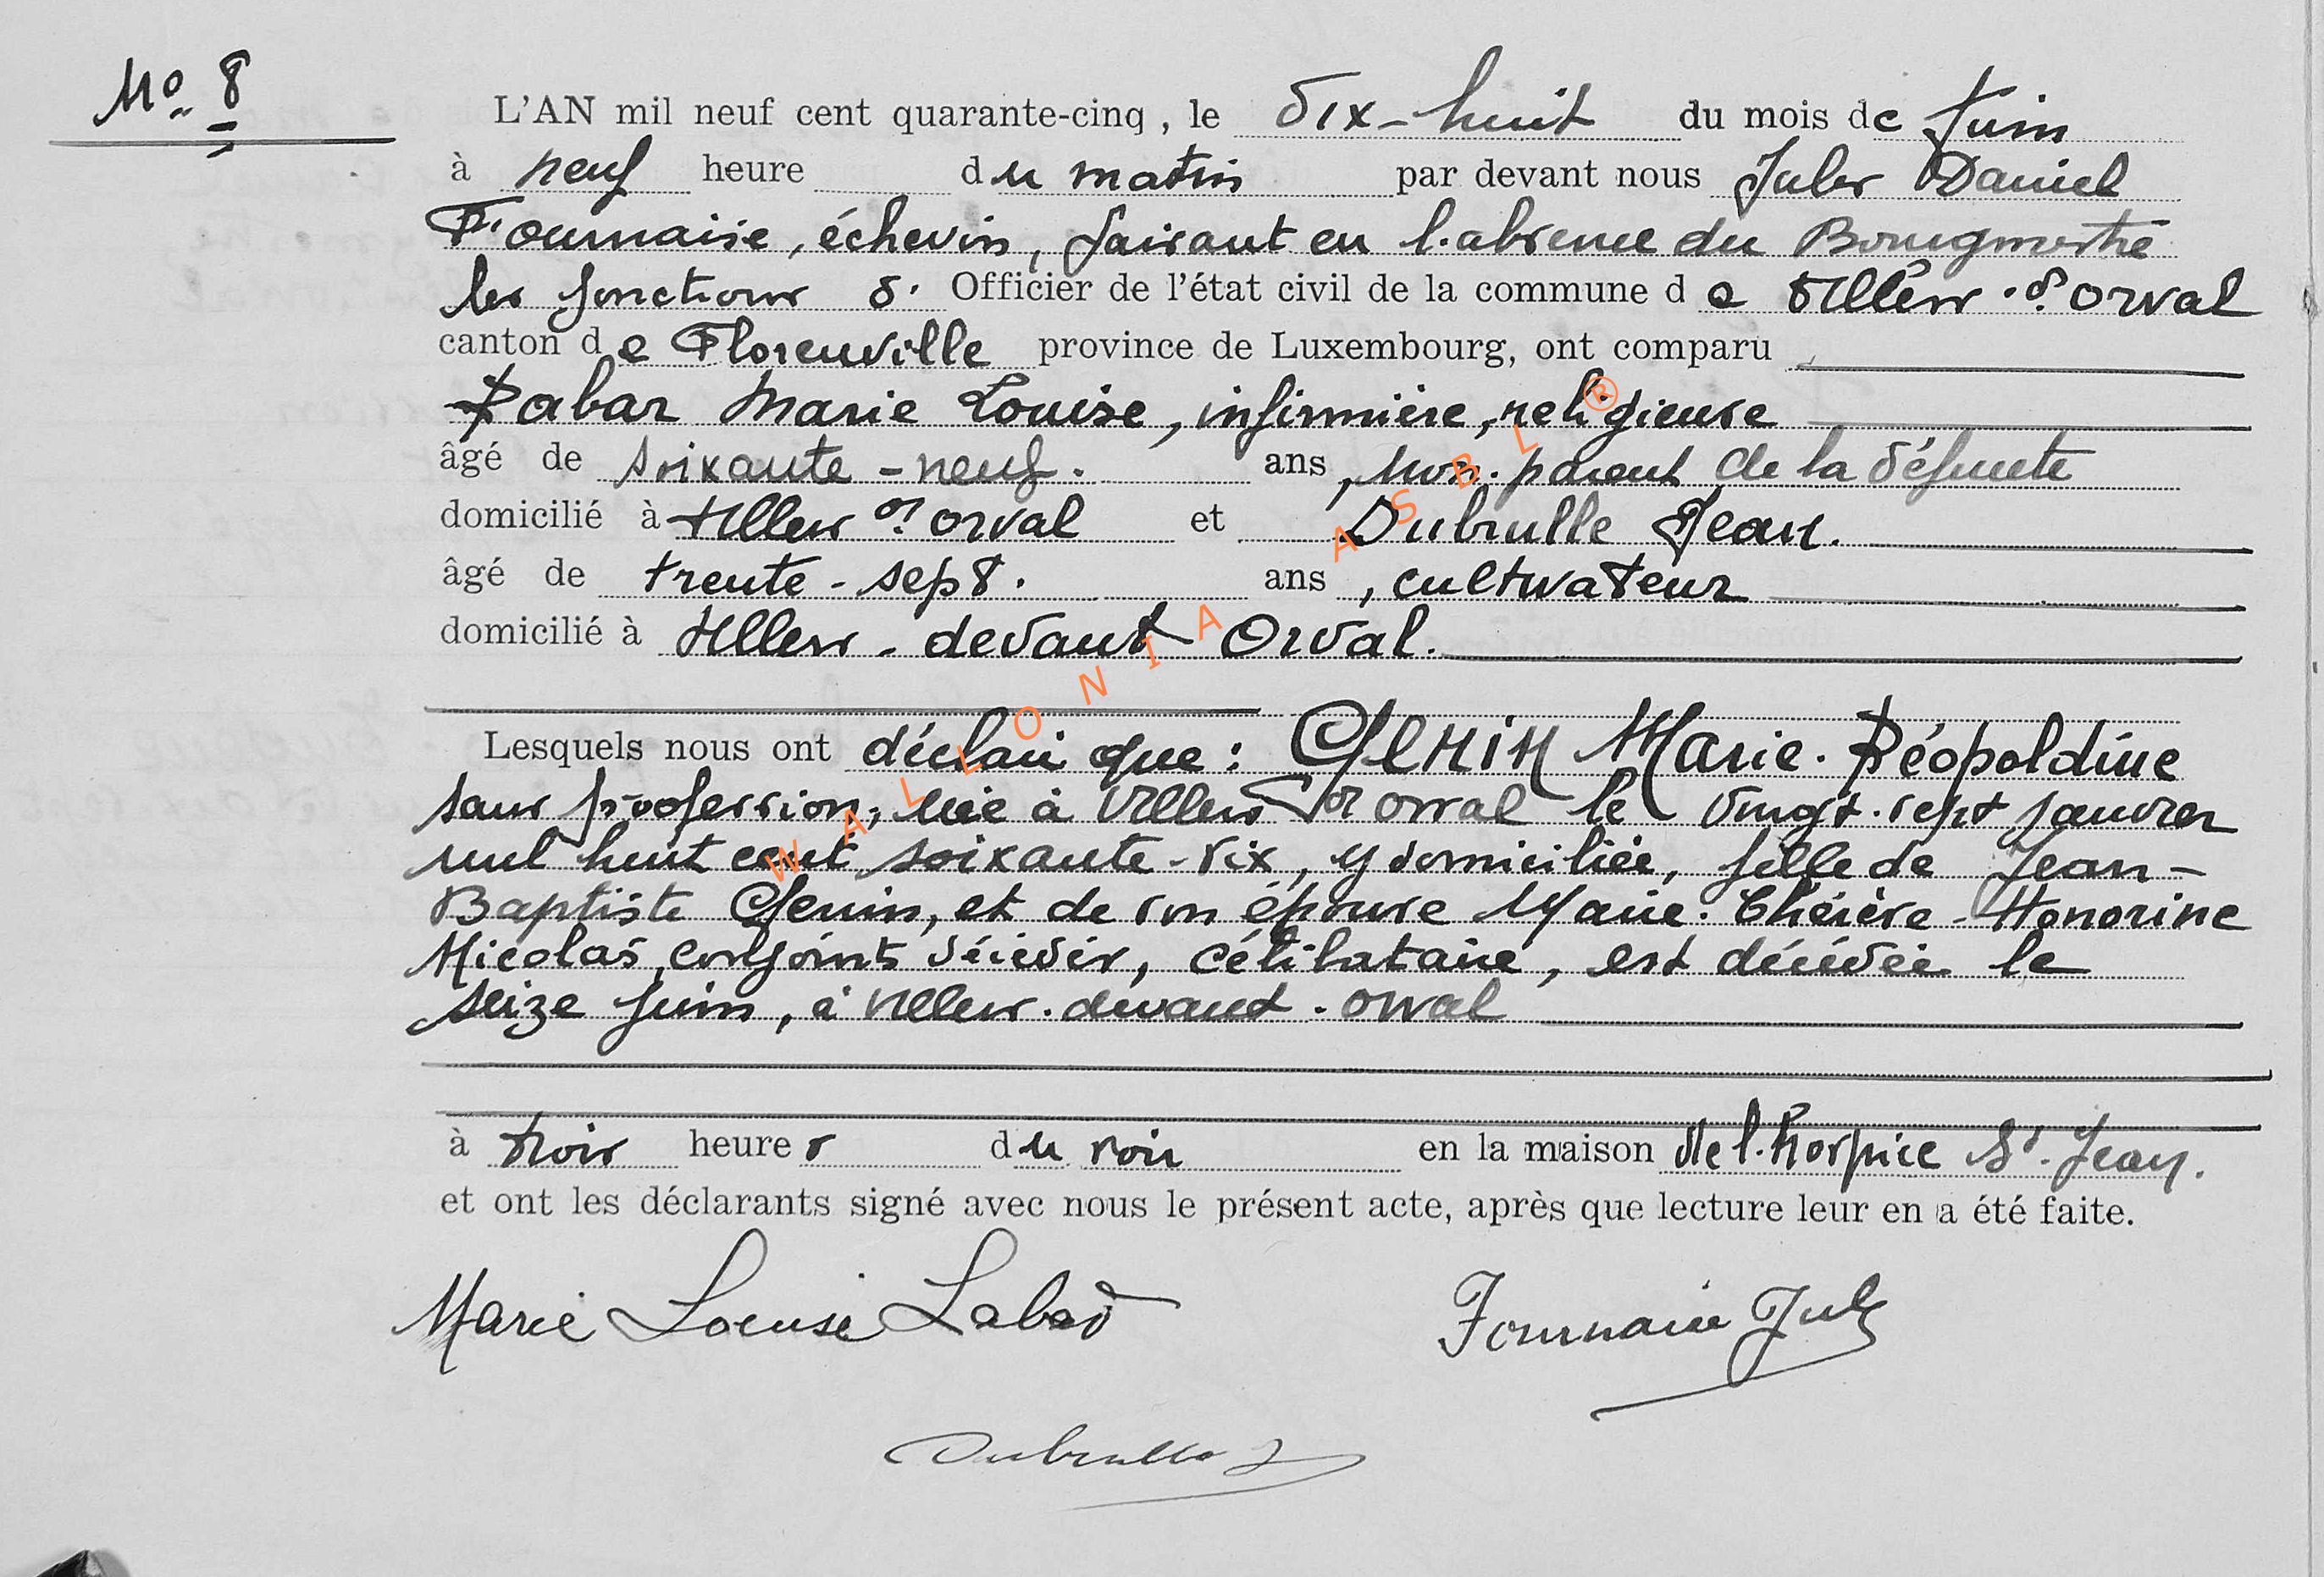 No 8
L'AN mil neuf cent quarante-cinq, le dix-huit du mois de Juin
à neuf heure du matin par devant nous Jules Daniel
Fournaise, échevin, faisant en l'absence du Bourgmestre
les fonctions d' Officier de l'état civil de la commune de Villers-dt Orval
canton de Florenville province de Luxembourg, ont comparu
Labar Marie Louise, infirmière, religieuse
âgé de soixante-neuf. ans, non parent de la défunte
domicilié à Villers dt Orval et Dubrulle Jean.
âgé de trente-sept. ans, cultivateur
domicilié à Villers-devant Orval.
Lesquels nous ont déclaré que: GENIN Marie-Léopoldine
sans profession, née à Villers dt Orval le vingt-sept janvier
mil huit cent soixante-six, y domiciliée, fille de Jean-
Baptiste Genin, et de son épouse Marie-Thérèse-Honorine
Nicolas, conjoints décédés, célibataire, est décédée le
seize juin, à Villers-devant-Orval
à trois heures du soir en la maison de l'hospice St-Jean.
et ont les déclarants signé avec nous le présent acte, après que lecture leur en a été faite.
Marie Louise Labar Fournaise Jules
Dubrulle J
WALLONIA ASBL ®